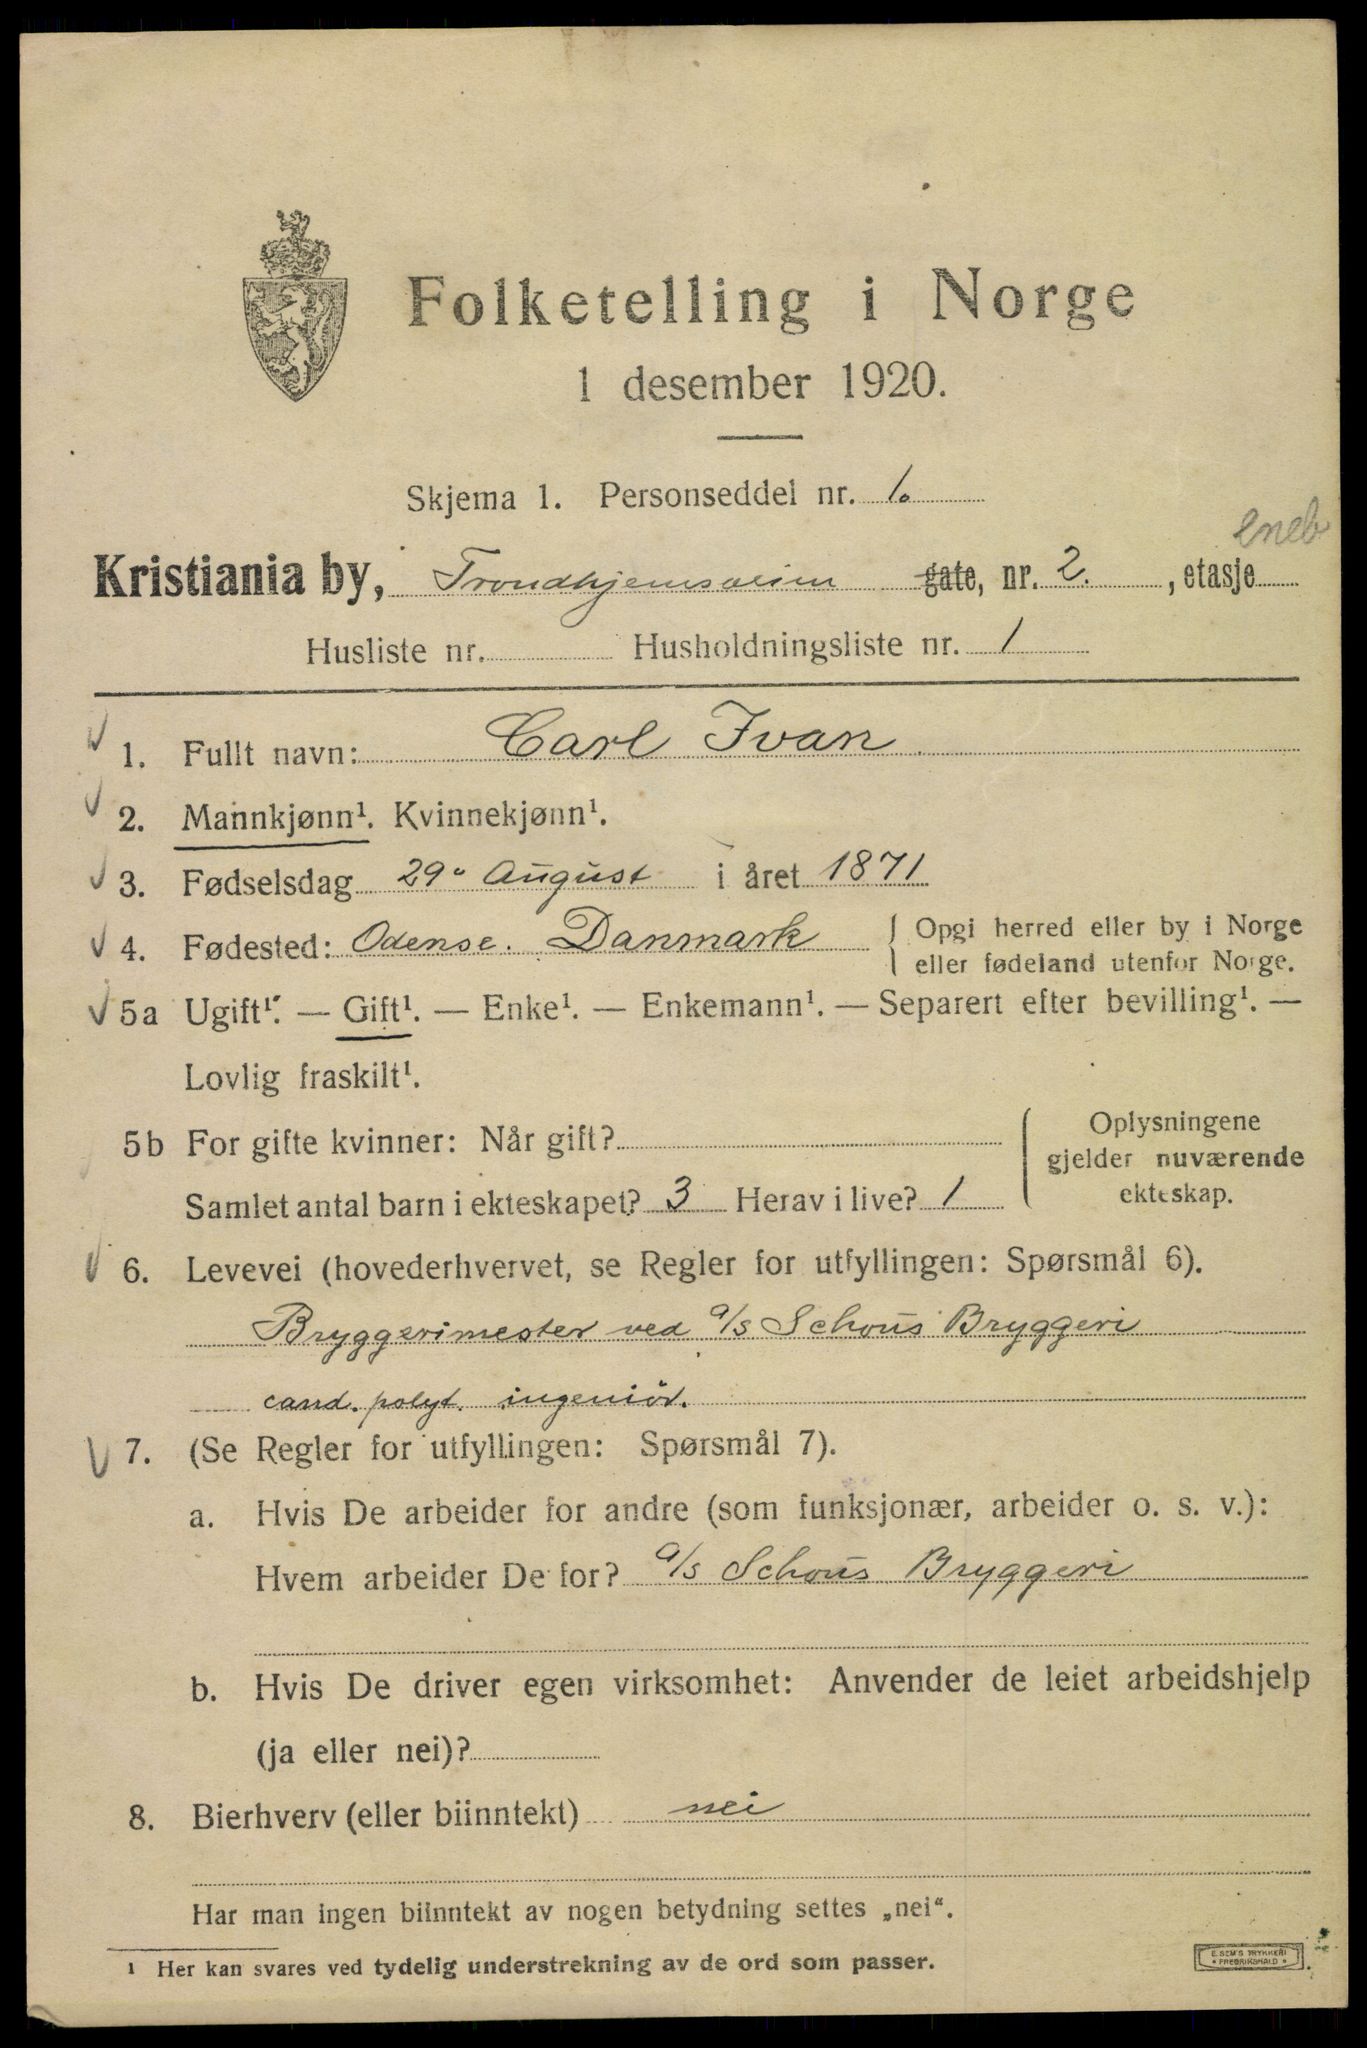 Folketelling i Norge
1 desember 1920.
Skjema 1. Personseddel nr. 1.
eneb
Kristiania by, Trondhjemsveien gate, nr. 2. , etasje
Husliste nr. Husholdningsliste nr. 1
1. Fullt navn: Carl Ivan
2. Mannkjønn¹. Kvinnekjønn¹.
3. Fødselsdag 29° August i året 1871
4. Fødested: Odense. Danmark { Opgi herred eller by i Norge
eller fødeland utenfor Norge.
5a Ugift¹. — Gift¹. — Enke¹. — Enkemann¹. — Separert efter bevilling¹. —
Lovlig fraskilt¹.
5b For gifte kvinner: Når gift? { Oplysningene
gjelder nuværende
Samlet antal barn i ekteskapet? 3 Herav i live? 1 ekteskap.
6. Levevei (hovederhvervet, se Regler for utfyllingen: Spørsmål 6).
Bryggerimester ved a/s Schous Bryggeri
cand. polyt. ingeniör.
7. (Se Regler for utfyllingen: Spørsmål 7).
a. Hvis De arbeider for andre (som funksjonær, arbeider o. s. v.):
Hvem arbeider De for? a/s Schous Bryggeri
b. Hvis De driver egen virksomhet: Anvender de leiet arbeidshjelp
(ja eller nei)?
8. Bierhverv (eller biinntekt) nei
Har man ingen biinntekt av nogen betydning settes „nei“.
¹ Her kan svares ved tydelig understrekning av de ord som passer.
E. SEM'S TRYKKERI
* FREDRIKSHALD *